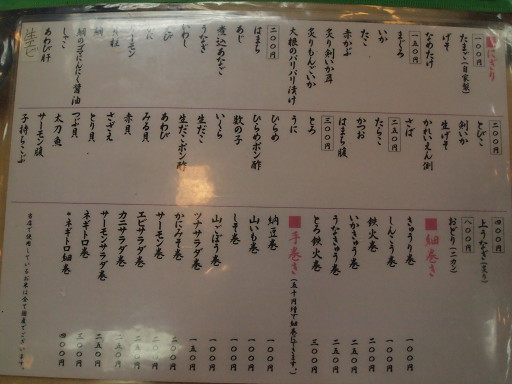 ■にぎり
一〇〇円
たまご(自家製)
げそ
なめたけ
一五〇円
まぐろ
いか
たこ
赤かぶ
炙り剣いか耳
炙りもんごいか
大根のパーパー漬け
二〇〇円
はまち
あじ
煮込あなご
うなぎ
いわし
えび
かに
サーモン
鯛の子にんにく醤油
しゃこ
あわび肝
二〇〇円
とびこ
剣いか
生げそ
かれいえん側
さば
二五〇円
たらこ
かつお
はまち腹
三〇〇円
とろ
うに
ひらめ
ひらめポン酢
数の子
いくら
生だこ
生だこポン酢
あわび
みる貝
赤貝
さざえ
とり貝
つぶ貝
太刀魚
サーモン腹
子持ちこぶ
四〇〇円
上うなぎ(炙り)
八〇〇円
おどり(二カン)
■細巻き
きゅうり巻 一〇〇円
しんこ巻 一〇〇円
鉄火巻 二〇〇円
いかきゅう巻 一五〇円
うなきゅう巻 二五〇円
とろ鉄火巻 三〇〇円
■手巻き(五十円増で細巻に出来ます。)
納豆巻 一〇〇円
山いも巻 一〇〇円
しそ巻 一〇〇円
山ごぼう巻 一〇〇円
ツナサラダ巻 一五〇円
かにみそ巻 二〇〇円
サーモン巻
エビサラダ巻 二五〇円
カニサラダ巻 二五〇円
サーモンサラダ巻
ネギトロ巻 三〇〇円
*ネギトロ細巻 四〇〇円
当店で使用しているお米は全て国産でございます。